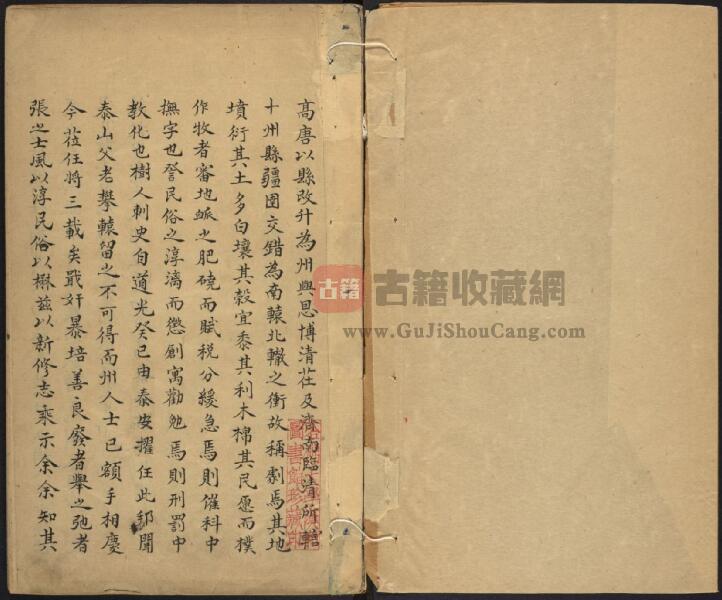 高唐以縣改升為州與恩博清茌及濟南臨清所轄
十州縣疆圉交錯為南轅北轍之衝故稱劇焉其地
墳衍其土多白壤其穀宜黍其利木棉其民愿而樸
作牧者審地脈之肥磽而賦稅分緩急焉則催科中
撫字也詧民俗之淳漓而懲創寓勸勉焉則刑罰中
教化也樹人刺史自道光癸巳由泰安擢任此邦聞
泰山父老攀轅留之不可得而州人士已額手相慶
今蒞任將三載矣戢奸暴培善良廢者舉之弛者
張之士風以淳民俗以楙茲以新修志乘示余余知其
古籍
古籍收藏網
www.GuJiShouCang.com
圖書館珍藏印